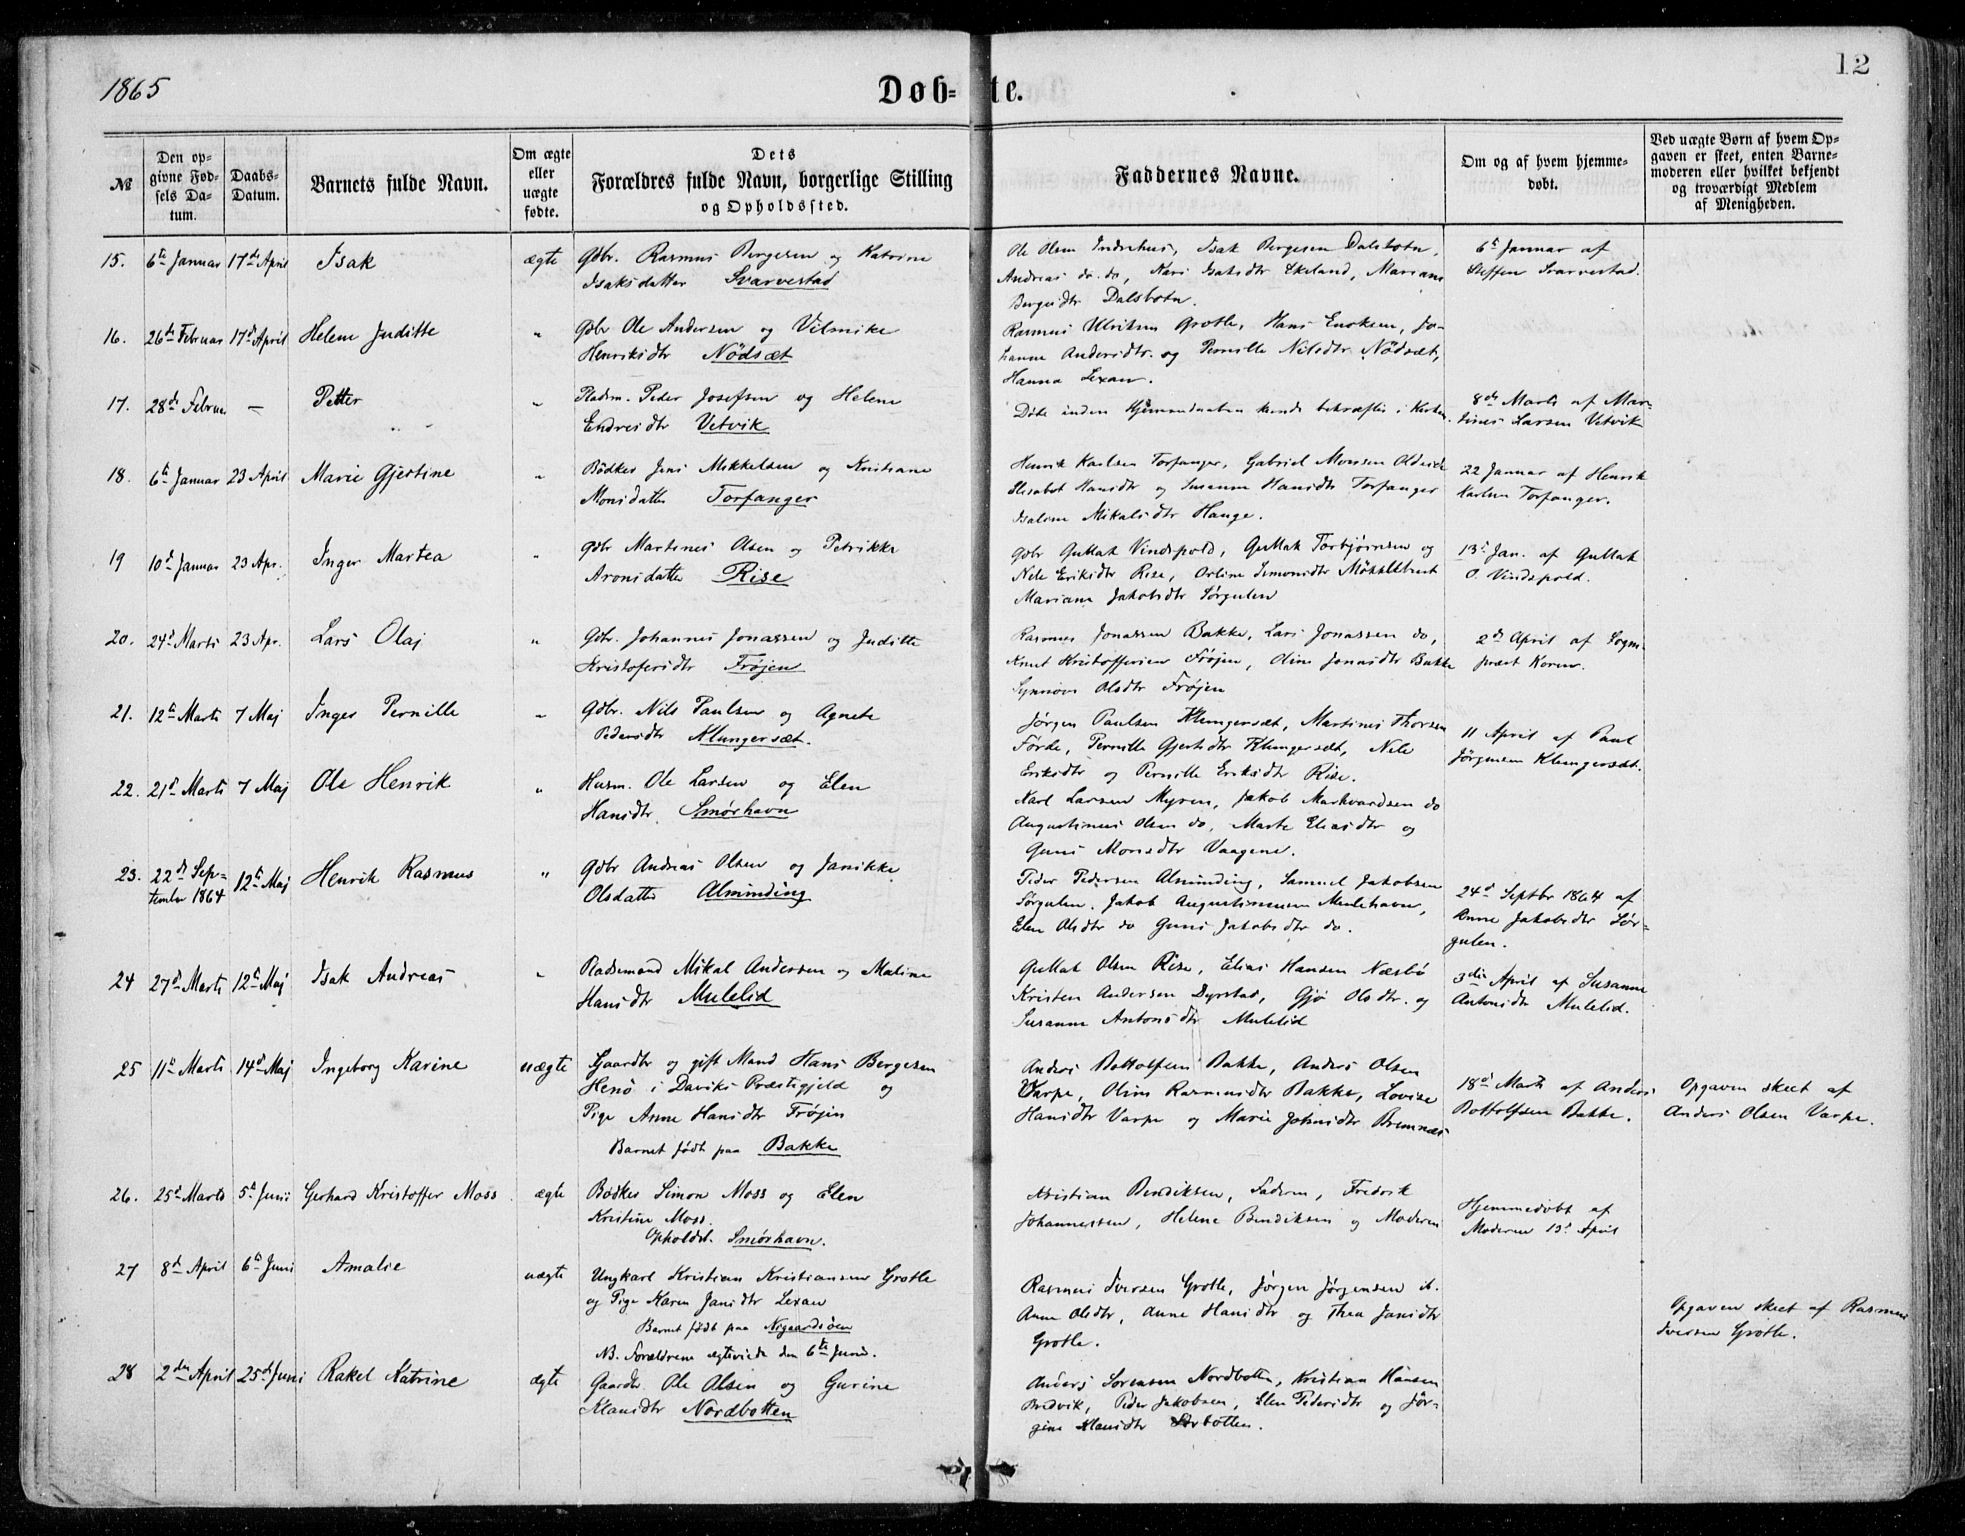 1865
Døb= te.
12
№
Den op=
givne Fød=
sels Da=
tum.
Daabs=
Datum.
Barnets fulde Navn.
Om ægte
eller
uægte
fødte.
Dets
Forældres fulde Navn, borgerlige Stilling
og Opholdssted.
Faddernes Navne.
Om og af hvem hjemme=
døbt.
Ved uægte Børn af hvem Op=
gaven er skeet, enten Barne=
moderen eller hvilket bekjendt
og troværdigt Medlem
af Menigheden.
15. 6te Januar 17de April Isak ægte Gdbr. Rasmus Bergesen og Katrine
Isaksdatter Svarvestad
Ole Olsen Indrehus, Isak Bergesen Dalsbotn,
Andreas do. do, Kari Isaksdtr Ekeland, Mariane
Bergesdtr Dalsbotn.
6te Januar af
Steffen Svarvestad.
16. 26de Februar 17de April Helene Juditte " Gdbr Ole Andersen og Vilmike
Henriksdtr Nödsæt
Rasmus Ulriksen Grotle, Hans Enoksen, Jo-
hanne Andersdtr. og Pernille Nilsdtr Nödsæt,
Hanna Lexau.
17. 28de Februar — Petter " Pladsm. Peder Josefsen og Helene
Endresdtr Vetvik
Döde inden Hjemmedaaben kunde bekræftes i Kirken.
8de Marts af Mar-
tines Larsen Vetvik
18. 6te Januar 23 April Marie Gjertine " Bödker Jens Mikkelsen og Kristiane
Monsdatter Torfanger
Henrik Karlsen Torfanger, Gabriel Monsen Oldeide
Elisabet Hansdtr og Susanne Hansdtr Torfanger
Isaline Mikalsdtr Hauge.
22 Januar af Henrik
Karlsen Torfanger.
19 10de Januar 23 Apr. Inger Martea " Gdbr Martines Olsen og Petrikke
Aronsdatter Rise
Gdbr Gullak Vindspold, Gullak Torbjørnsen og
Nele Eriksdtr Rise, Orline Simonsdtr
Mariane Jakobsdtr Sørgulen
13de Jan. af Gullak
O. Vindspold.
20. 24de Marts 23 Apr. Lars Olaj " Gdbr. Johannes Jonassen og Juditte
Kristofersdtr Frøjen
Rasmus Jonassen Bakke, Lars Jonassen do,
Knut Kristoffersen Frøjen, Oline Jonasdtr Bakke
Synnøve Olsdtr Frøjen
2de April af Sogne-
præst Koren.
21. 12te Marts 7 Maj Inger Pernille " Gdbr. Nils Paulsen og Agnete
Pedersdtr Klungersæt.
Jørgen Paulsen Klungersæt, Martines Thorsen
Førde, Pernille Gjertsdtr Klungersæt, Nele
Eriksdtr og Pernille Eriksdtr Rise.
11 April af Paul
Jörgensen Klungersæt.
22. 21de Marts 7 Maj Ole Henrik " Husm. Ole Larsen og Elen
Hansdtr. Smørhavn
Karl Larsen Myren, Jakob Markvardsen do
Augustinus Olsen do, Marte Eliasdtr og
Guri Monsdtr Vaagene.
23. 22de Sep-
tember 1864 12te Maj Henrik Rasmus " Gdbr Andreas Olsen og Janikke
Olsdatter Alminding
Peder Pedersen Alminding, Samuel Jakobsen
Sørgulen. Jakob Augustinussen Mulehavn,
Elen Olsdtr do Guri Jakobsdtr do.
24de Septbr 1864 af
Anne Jakobsdtr Sör-
gulen.
24 27de Marts 12te Maj Isak Andreas " Pladsmand Mikal Andersen og Maline
Hansdtr Mulelid
Gullak Olsen Rise, Elias Hansen Næsbö
Kristen Andersen Dyrstad, Gjø Olsdtr. og
Susanne Antonsdtr Mulelid
3die April af Susanne
Antonsdtr Mulelid.
25 11te Marts 14de Maj Ingeborg Karine uægte Gaardbr og gift Mand Hans Bergesen
Henö i Daviks Præstegjeld og
Pige Anne Hansdtr Frøjen
Barnet født paa Bakke
Anders Bottolfsen Bakke, Anders Olsen
Varpe, Oline Rasmusdtr Bakke, Lovise
Hansdtr Varpe og Marie Johnsdtr Bremnæs
18de Marts af Anders
Bottolfsen Bakke.
Opgaven skeet af
Anders Olsen Varpe.
26. 25de Marts 5te Juni Gerhard Kristoffer Moss ægte Bödker Simon Moss og Elen
Kristine Moss.
Opholdst. Smørhavn.
Kristian Bendiksen, Faderen, Fredrik
Johannessen, Helene Bendiksen og Moderen
Hjemmedøbt af
Moderen 13de April
27 8de April 6te Juni Amalie uægte Ungkarl Kristian Kristiansen Grotle
og Pige Karen Jansdtr Lexau
Barnet født paa Nygaardsöen
NB. Forældrene ægteviede den 6te Juni.
Rasmus Iversen Grotle, Jørgen Jørgensen
Anne Olsdtr, Anne Hansdtr og Thea Jansdtr
Grotle.
Opgaven skeet af Rasmus
Iversen Grotle.
28 2den April 25de Juni Rakel Katrine ægte Gaardbr. Ole Olsen og Gurine
Klausdtr Nordbotten
Anders Sørensen Nordbotten, Kristian Hansen
Bredvik, Peder Jakobsen, Elen Pedersdtr og Jör-
gine Klausdtr Sørbotten.